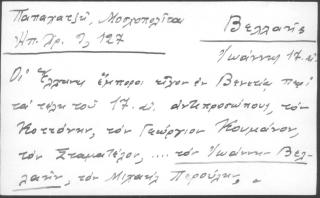 Παπαχατζῆ, Μοσχοπολῖται
Βελλάκης
Ἠπ. Χρ. 9, 127
Ἰωάννης 17. αἰ.
Οἱ Ἕλληνες ἔμποροι εἶχον ἐν Βενετίᾳ περὶ
τὰ τέλη τοῦ 17. αἰ. ἀντιπροσώπους, τὸν
Κοττόνην, τὸν Γεώργιον Κουμάνον,
τὸν Σταματέλον, .... τὸν Ἰωάννην Βελ-
λαΐην, τὸν Μιχαὴλ Περούλην, .